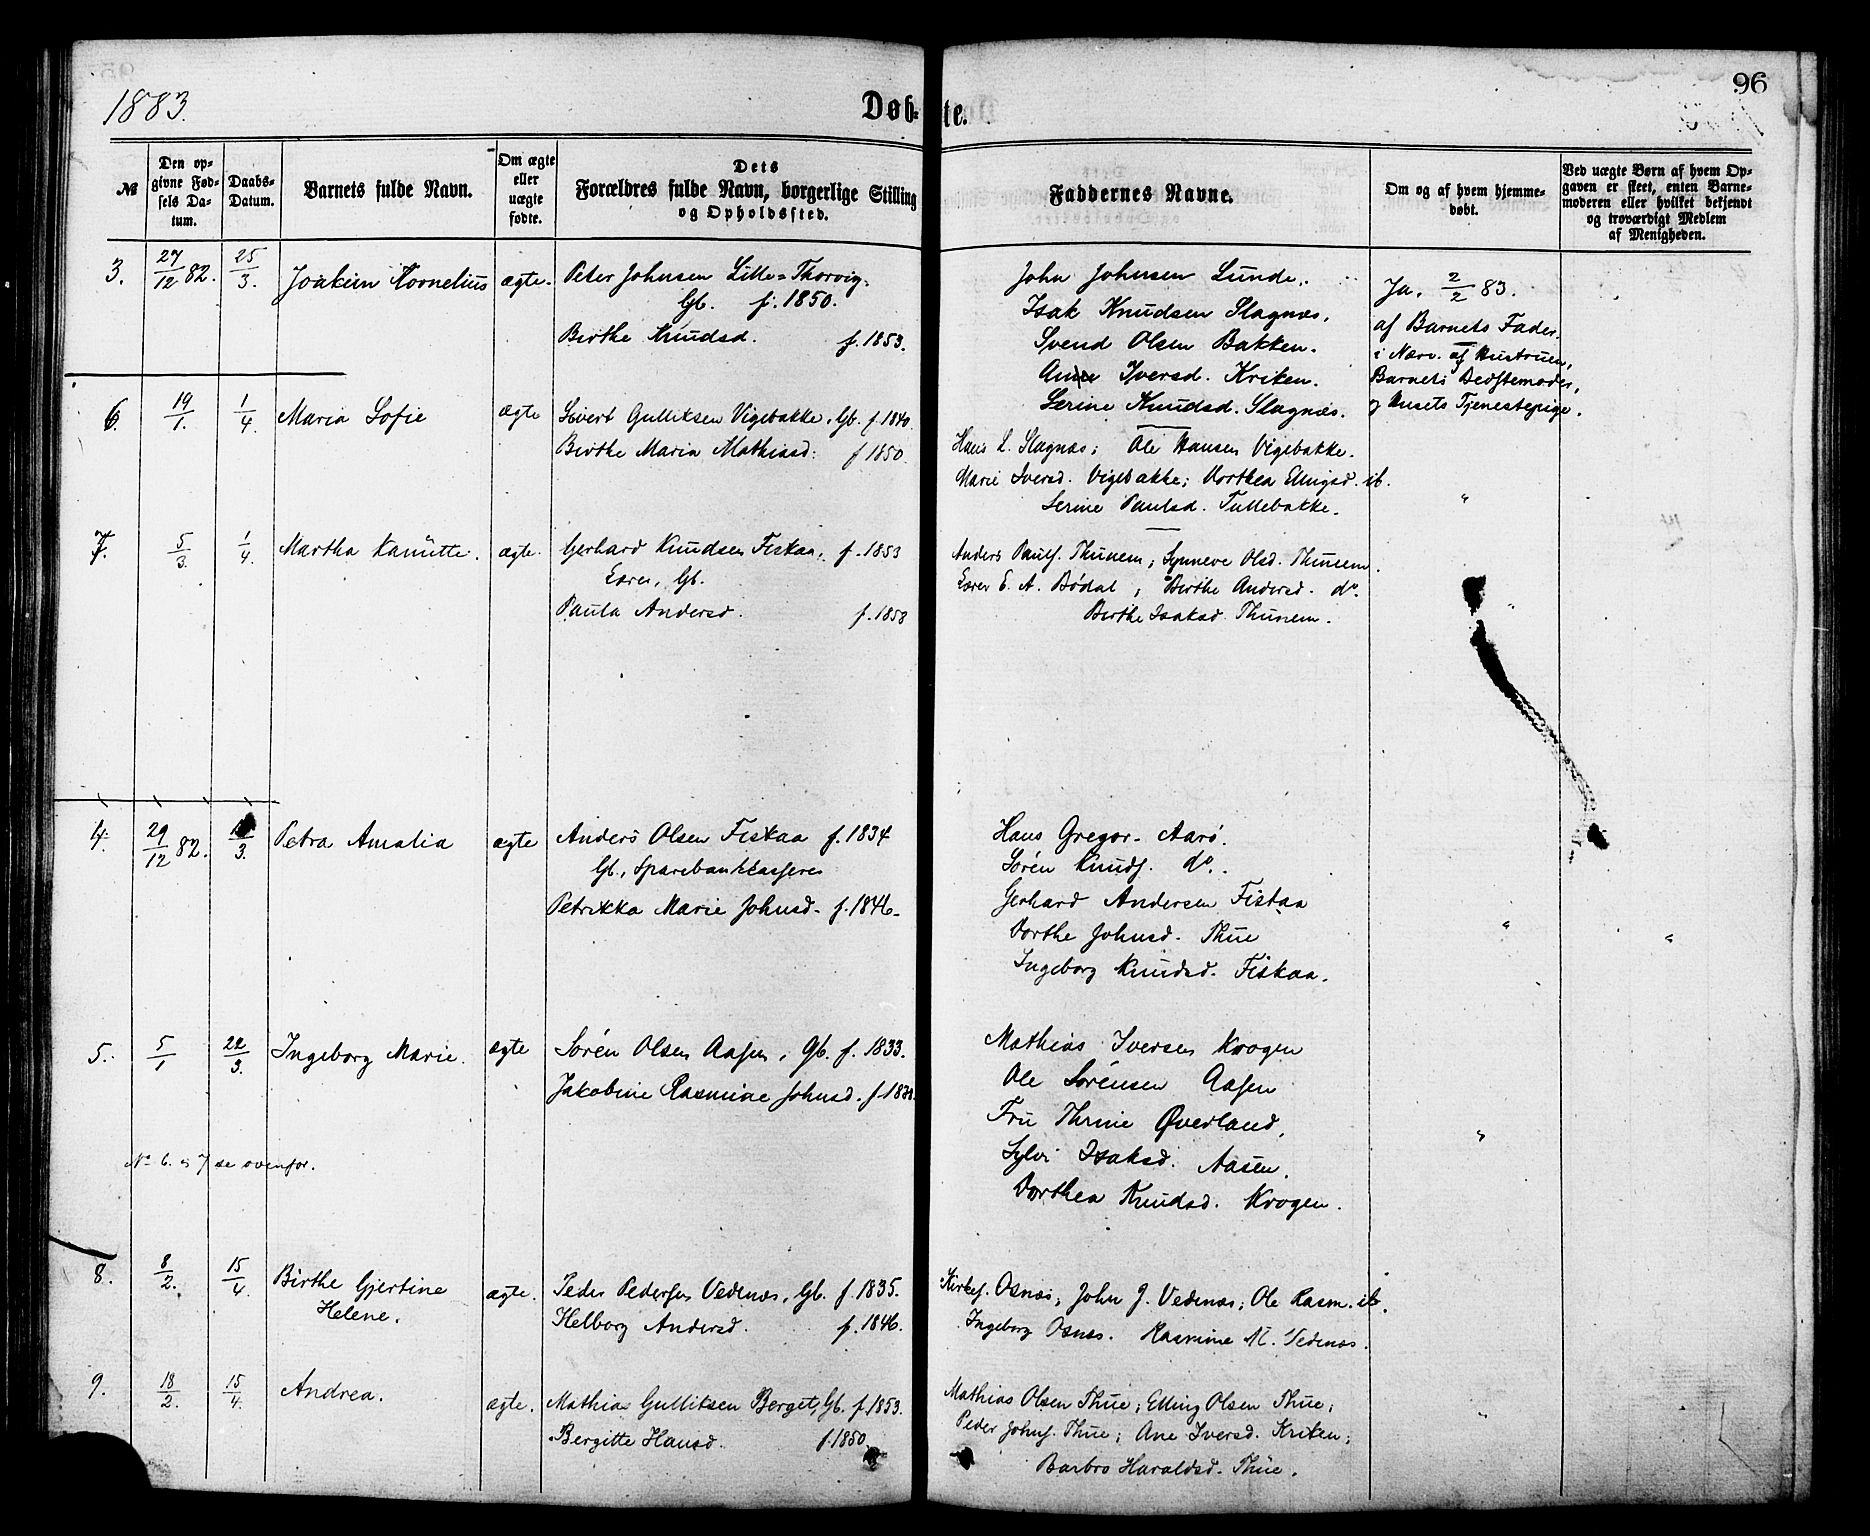 96
1883.
Døb- te.
№
Den op-
givne Fød-
sels Da-
tum.
Daabs-
Datum.
Barnets fulde Navn.
Om ægte
eller
uægte
fødte.
Dets
Forældres fulde Navn, borgerlige Stilling
og Opholdssted.
Faddernes Navne.
Om og af hvem hjemme-
døbt.
Ved uægte Børn af hvem Op-
gaven er skeet, enten Barne-
moderen eller hvilket bekjendt
og troværdigt Medlem
af Menigheden.
3. 27/12 82. 25/3. Joakim Kornelius ægte. Peter Johnsen Lille-Thorvig.
Gb. f. 1850.
Birthe Knudsd. f. 1853.
John Johnsen Lunde.
Isak Knudsen Slagnæs.
Svend Olsen Bakken.
Ane Iversd. Kriken.
Serine Knudsd. Slagnæs.
Ja. 2/2 83.
af Barnets Fader.
i Nærv. af Hustruen,
Barnets Bedstemoder,
og Husets Tjenestepige.
6. 19/1. 1/4. Maria Sofie ægte Sivert Gulliksen Vigebakke, Gb. f. 1840.
Birthe Maria Mathiasd: f 1850.
Hans L. Slagnæs; Ole Hansen Vigebakke.
Marie Iversd. Vigebakke; Dorthea Ellingsd. ib.
Serine Paulsd. Tullebakke.
"
7. 5/3. 1/4. Martha Kanutte. ægte. Gerhard Knudsen Fiskaa, f. 1853
Lærer, Gb.
Paula Andersd. f. 1858
Anders Pauls. Thunem; Synneve Olsd. Thunem.
Lærer E. A. Bødal, Birthe Andersd. do.
Birthe Isaksd. Thunem.
"
4. 29/12 82. /3. Petra Amalia ægte Anders Olsen Fiskaa f. 1834
Gb., Sparebankkasserer
Petrikka Marie Johnsd. f. 1846.
Hans Gregor. Aarø.
Søren Knuds. do.
Gerhard Andersen Fiskaa
Dorthe Johnsd. Thue
Ingeborg Knudsd. Fiskaa.
" "
5. 5/1 22/3. Ingeborg Marie. ægte Søren Olsen Aasen, Gb. f. 1833.
Jakobine Rasmine Johnsd. f.
Mathias Iversen Krogen
Ole Sørensen Aasen
Fru Thrine Øverland,
Sylvi Isaksd. Aasen.
Dorthea Knudsd. Krogen.
"
No 6. og 7 se ovenfor.
8. 8/2. 15/4. Birthe Gjertine
Helene.
ægte. Peder Pedersen Vedenæs, Gb. f. 1835.
Helborg Andersd. f. 1846.
Kirkes. Osnæs; John J. Vedenæs; Ole Rasm. ib.
Ingeborg Osnæs. Rasmine M. Vedenæs.
9. 18/2. 15/4. Andrea. ægte. Mathias Gulliksen Berget, Gb. f. 1853.
Bergitte Hansd. f. 1850.
Mathias Olsen Thue; Elling Olsen Thue;
Peder Johns. Thue; Ane Iversd. Kriken;
Barbro Haraldsd. Thue.
"